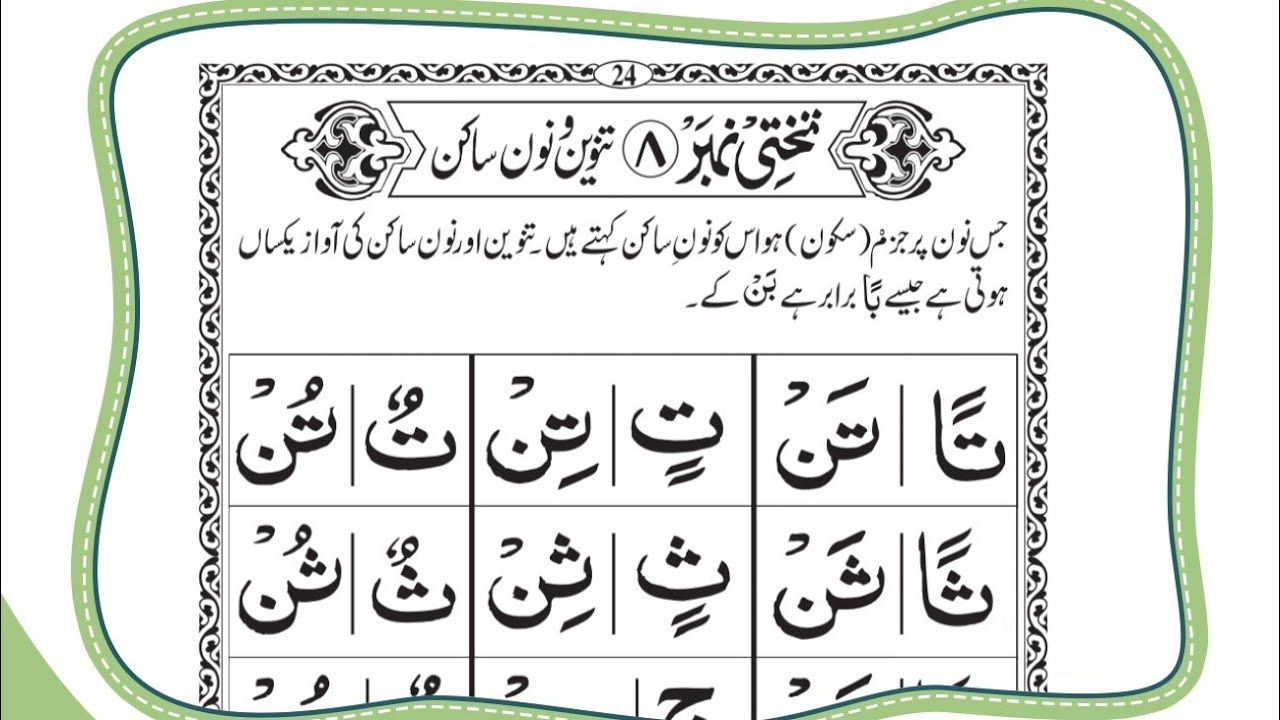 24
تختی نمبر ۸ تنوین و نون ساکن
جس نون پر جزم (سکون) ہو اس کو نونِ ساکن کہتے ہیں۔ تنوین اور نون ساکن کی آواز یکساں
ہوتی ہے جیسے بًا برابر ہے بَنْ کے۔
تًا تَنْ تٍ تِنْ تٌ تُنْ
ثًا ثَنْ ثٍ ثِنْ ثٌ ثُنْ